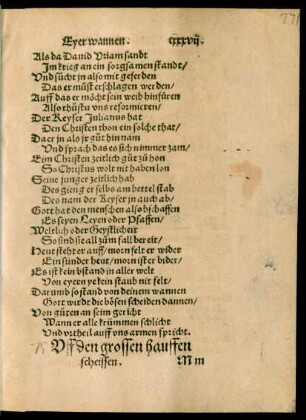 Eyer wannen. cxxxvij.
Als da Dauid Vriam sandt
Im krieg an ein sorgsamen standt/
Vnd sůcht jn also mit geferden
Das er můst erschlagen werden/
Auff das er möcht sein weib hinfüren
Also thůstu vns reformieren/
Der Keyser Julianus hat
Den Christen thon ein solche that/
Da er jn als jr gůt hin nam
Vnd sprach das es sich nimmer zam/
Eim Christen zeitlich gůt zů hon
So Christus wolt nit haben lon
Seine junger zeitlich hab
Des gieng er selbs am bettel stab
Des nam der Keyser jn auch ab/
Gott hat den menschen also bschaffen
Es seyen Leyen oder Pfaffen/
Weltlich oder Geystlicheit
So sind sie all zům fall bereit/
Heut steht er auff/ morn felt er wider
Ein sünder heut/ morn ist er bider/
Es ist kein bstand in aller welt
Von eyern ye kein staub nit felt/
Darumb so stand von deinem wannen
Gott wirdt die bösen scheiden dannen/
Von gůten an seim gericht
Wann er alle krümmen schlicht
Vnd vrtheil auff vns armen spricht.
Vff den grossen hauffen
scheissen. Mm